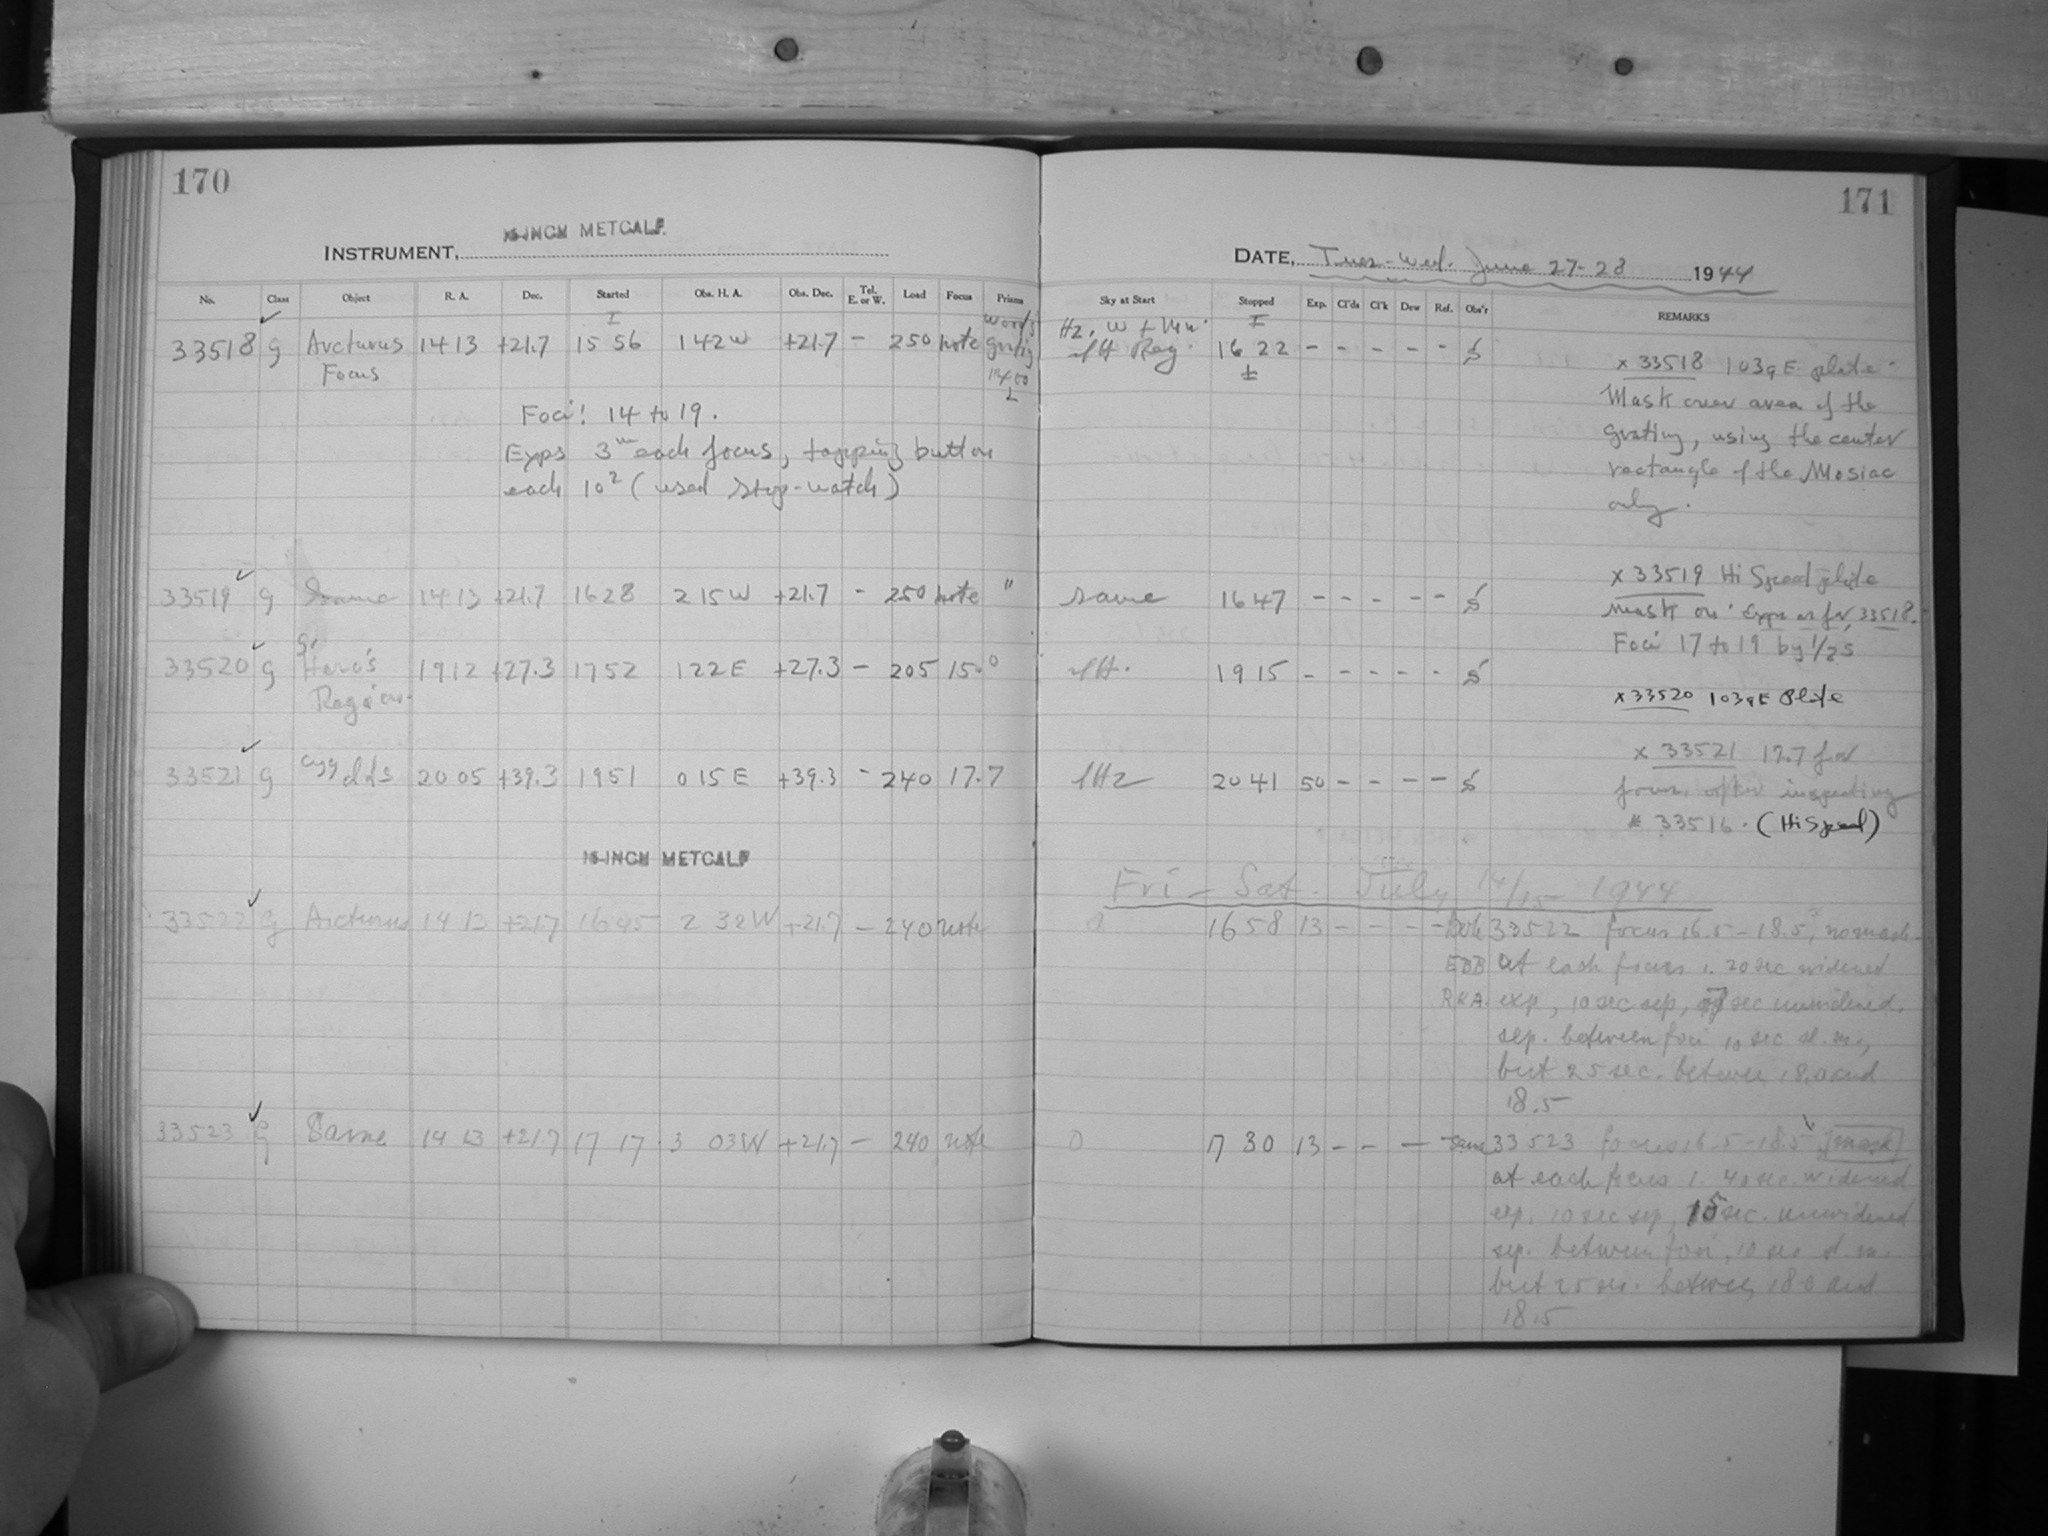 170
16-INCH METCALF
INSTRUMENT,
No. Class Object R. A. Dec. Started Obs. H. A. Obs. Dec. Tel. E. or W. Load Focus Prisms
33518 G Arcturus 14 13 +21.7 15 56 1 42 W +21.7 – 250 note
Focus
Foci: 14 to 19.
Exps 3m each focus, tapping button
each 10s (used stop-watch)
33519 G Same 14 13 +21.7 16 28 2 15 W +21.7 – 250 note "
33520 G 19 12 +27.3 17 52 1 22 E +27.3 – 205 15.0
Region
33521 G Cyg 20 05 +39.3 19 51 0 15 E +39.3 – 240 17.7
16-INCH METCALF
33522 G Arcturus 14 13 +21.7 16 45 2 32 W +21.7 – 240 note
33523 G Same 14 13 +21.7 17 17 3 03 W +21.7 – 240 note
171
DATE, Tues-Wed. June 27-28 1944
Sky at Start Stopped Exp. Cl'ds Cl'k Dew Ref. Obs'r REMARKS
16 22 – – – – –
x 33518 103aE plate
Mask over area of the
grating, using the center
rectangle of the Mosiac
only.
same 16 47 – – – – –
x 33519 Hi Speed plate
mask on. Exps as for 33518.
Foci 17 to 19 by 1/2s
19 15 – – – – –
x 33520 103aE Plate
20 41 50 – – – –
x 33521 17.7 for
focus, after inspecting
x 33516. (Hi Speed)
Fri – Sat. July 14/15 1944
0 16 58 13 – – – – 33522 focus 16.5–18.5, no mask.
EBB at each focus 1. 20 sec widened
RHA. exp, 10 sec sep, sec unwidened.
sep. between foci 10 sec
but 25 sec. between 18.0 and
18.5
0 17 30 13 – – – – same 33523 focus 16.5–18.5 [mask]
at each focus 1. 40 sec. widened
exp. 10 sec sep, 15 sec. unwidened
sep. between foci, 10 sec
but 25 sec. between 18.0 and
18.5